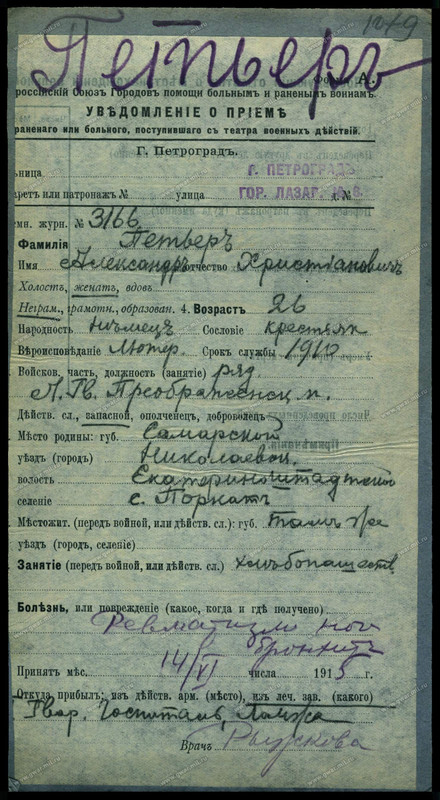 1079
Петьеръ
Форма А.
россійскій Союзъ Городовъ помощи больнымъ и раненымъ воинамъ.
УВѢДОМЛЕНІЕ О ПРІЕМѢ
раненаго или больного, поступившаго съ театра военныхъ дѣйствій.
Г. Петроградъ.
ьница Г. ПЕТРОГРАДЪ
аретъ или патронажъ № улица ГОР. ЛАЗАР. д. №
емн. журн. № 3166
Фамилія Петьеръ
Имя Александръ отчество Христіановичъ
Холостъ, женатъ, вдовъ
Неграм., грамотн., образован. 4. Возрастъ 26
Народность Нѣмецъ Сословіе крестьян
Вѣроисповѣданіе Лютер. Срокъ службы 1910
Войсков. часть, должность (занятіе) ряд.
Л. Гв. Преображенск. п.
Дѣйств. сл., запасной, ополченецъ, доброволецъ
Мѣсто родины: губ. Самарской
уѣздъ (городъ) Николаевск.
волость Екатериноштадтской
селеніе с. Поркатъ
Мѣстожит. (передъ войной, или дѣйств. сл.): губ. тамъ же
уѣздъ (городъ, селеніе)
Занятіе (передъ войной, или дѣйств. сл.) хлѣбопашеств.
Болѣзнь, или поврежденіе (какое, когда и гдѣ получено)
Ревматизм ног
бронхитъ
Принятъ мѣс. 14/XI 1915 г.
Откуда прибылъ: изъ дѣйств. арм. (мѣсто), изъ леч. зав. (какого)
Госпиталь, Ломжа
Врачъ